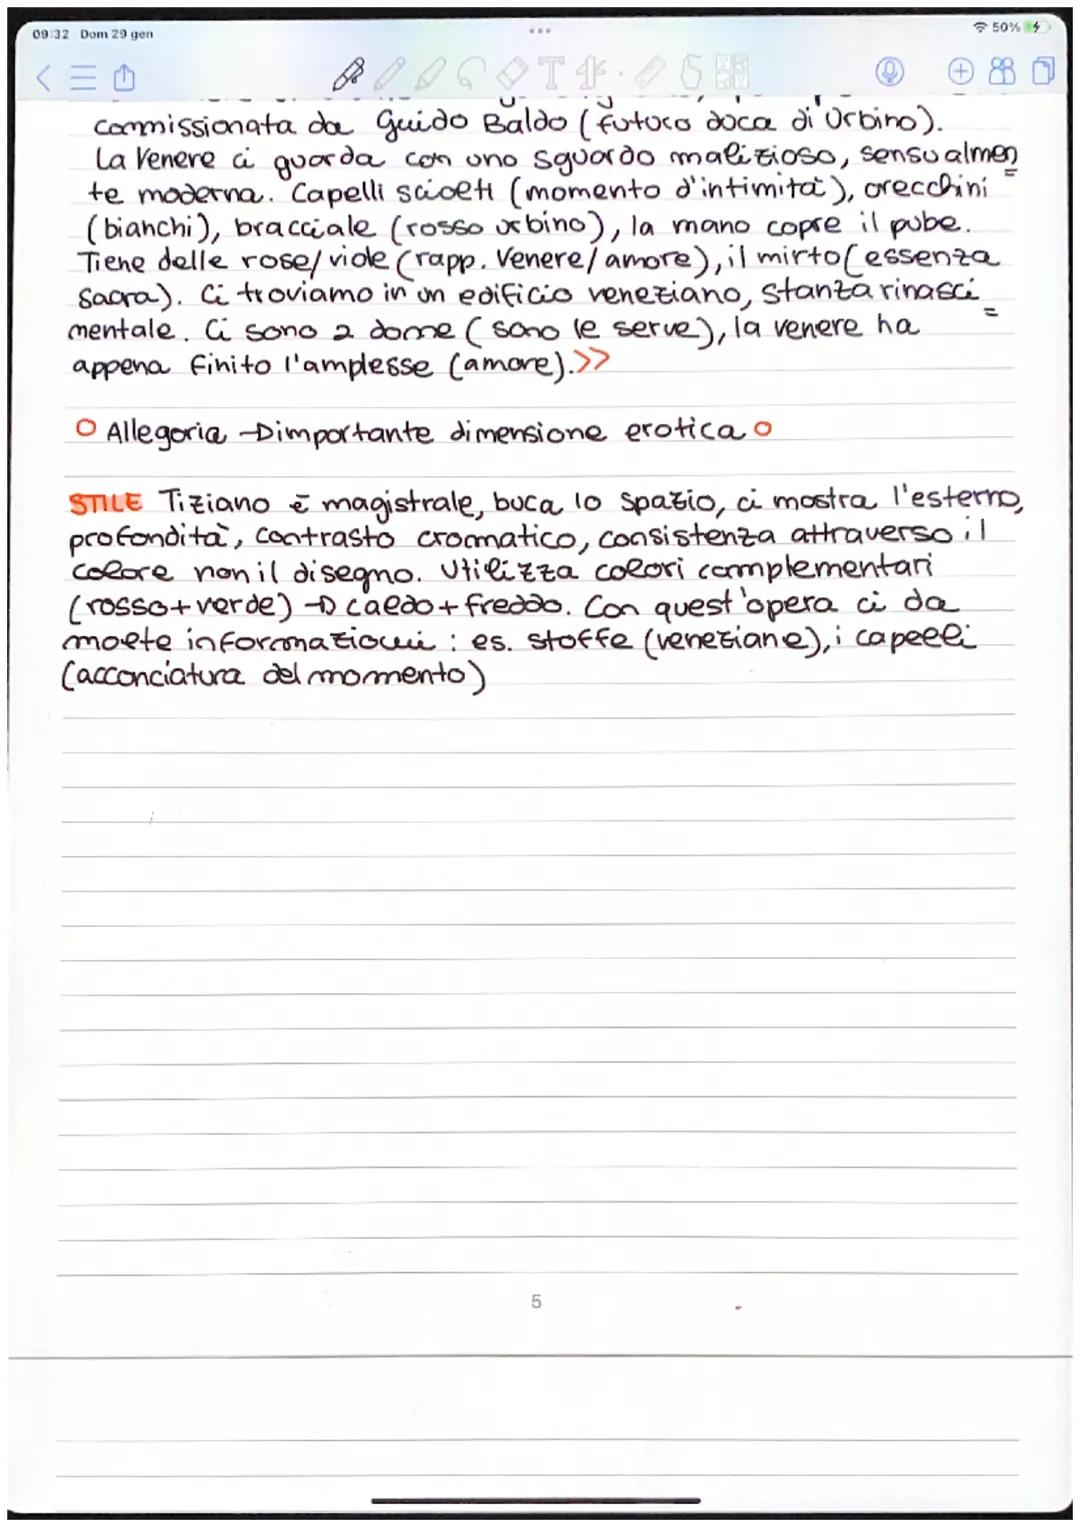 09:32 Dom 29 gen
50%
commissionata da Guido Baldo (futuro duca di Urbino).
La Venere ci guarda con uno sguardo malizioso, sensualmen
te moderna. Capelli sciolti (momento d'intimità), orecchini
(bianchi), bracciale (rosso urbino), la mano copre il pube.
Tiene delle rose/viole (rapp. Venere/amore), il mirto (essenza
sacra). Ci troviamo in un edificio veneziano, stanza rinasci
mentale. Ci sono 2 donne (sono le serve), la venere ha
appena finito l'amplesse (amore).>>
O Allegoria → importante dimensione erotica O
STILE Tiziano è magistrale, buca lo spazio, ci mostra l'esterno,
profondità, contrasto cromatico, consistenza attraverso il
colore non il disegno. Utilizza colori complementari
(rosso+verde) → caldo+freddo. Con quest'opera ci da
molte informazioni : es. stoffe (veneziane), i capelli
(acconciatura del momento)
5